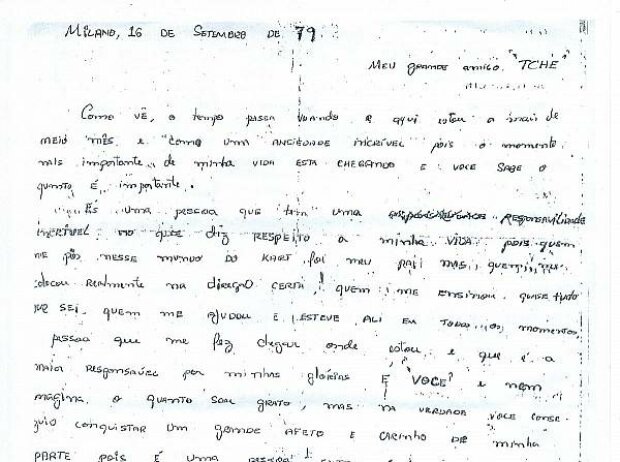 MILANO, 16 DE SETEMBRO DE 79.
MEU grande amigo "TCHÊ"
Como vê, o tempo passa voando e aqui estou a mais de
MEIO MÊS, e "COMO UM ANCIEDADE INCRÍVEL pois o momento
mais importante de minha VIDA ESTA CHEGANDO E VOCE SABE O
quanto É importante.
És uma pessoa que tem uma RESPONSAVILIDADE
INCRÍVEL no que diz RESPEITO a minha VIDA pois quem
me pôs NESSE MUNDO DO KART foi meu PAI MAS, quem me
colocou REALMENTE na direção CERTA, quem me ENSINOU quase tudo
que SEI, quem me ajudou E ESTEVE ALI EM TODOS os momentos,
pessoa que me fez chegar onde estou e que é a
maior RESPONSAVEL por minhas glórias É "VOCE" e nem
imagina o quanto sou GRATO, mas na VERDADE VOCE CONSE-
guio CONQUISTAR UM grande AFETO E CARINHO DE minha
PARTE pois É uma